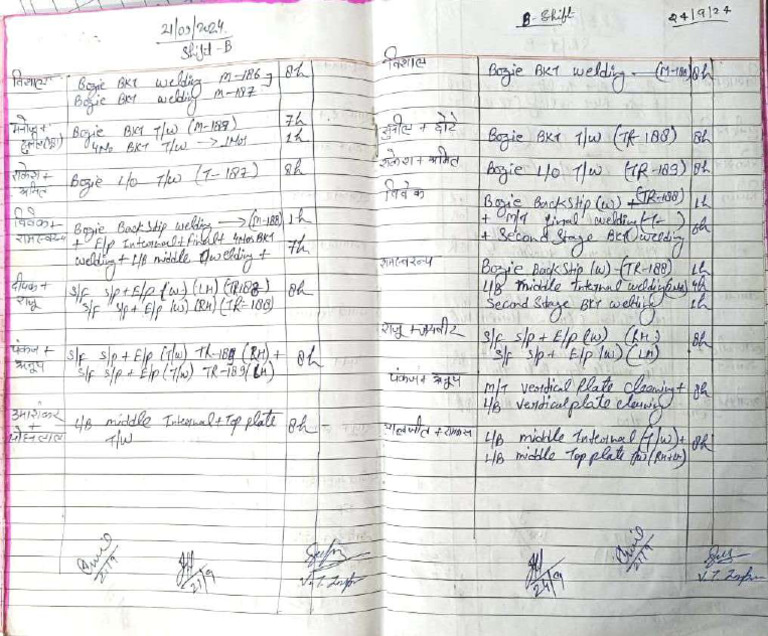 21/09/2024
Shift-B
विशाल Bogie BKT welding M-186 8h
Bogie BKT welding M-187
मनोज + Bogie BKT T/W (M-188) 7h
4Nos BKT T/W → 1Nos 1h
राकेश + अमित Bogie L/O T/W (T-187) 8h
विवेक + Bogie Back Stip welding → (M-188) 1h
रामस्वरूप + E/p Internal + final + 4Nos BKT
welding + L/B middle welding + 7h
दीपक + S/F S/p + E/p (W) (LH) (TR188) 8h
राजू S/F S/p + E/p (W) (RH) (TR-188)
पंकज + S/F S/p + E/p (T/W) TR-189 (RH) + 8h
अनूप S/F S/p + E/p (T/W) TR-189 (LH)
उमाशंकर + L/B middle Internal + Top plate 8h
मोहनलाल T/W
21/9
21/9
B-Shift
24/9/24
विशाल Bogie BKT welding (M-188) 8h
सुनील + छोटे Bogie BKT T/W (TR-188) 8h
राकेश + अमित Bogie L/O T/W (TR-189) 8h
विवेक Bogie Back Stip (W) + (TR-188) 1h
+ M/T final welding
+ Second Stage BKT welding
रामस्वरूप Bogie Back Stip (W) - (TR-188) 1h
L/B middle Internal welding 4h
Second Stage BKT welding 1h
राजू + S/F S/p + E/p (W) (RH) 8h
S/F S/p + E/p (W) (LH)
पंकज + अनूप M/T verdical Plate cleaning + 8h
L/B verdical plate cleaning
L/B middle Internal (T/W) + 8h
L/B middle Top plate T/W (RH+LH)
24/9